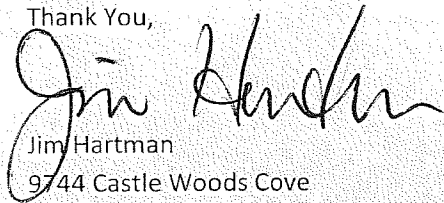 Thank You,
Jim Hartman
Jim Hartman
9744 Castle Woods Cove